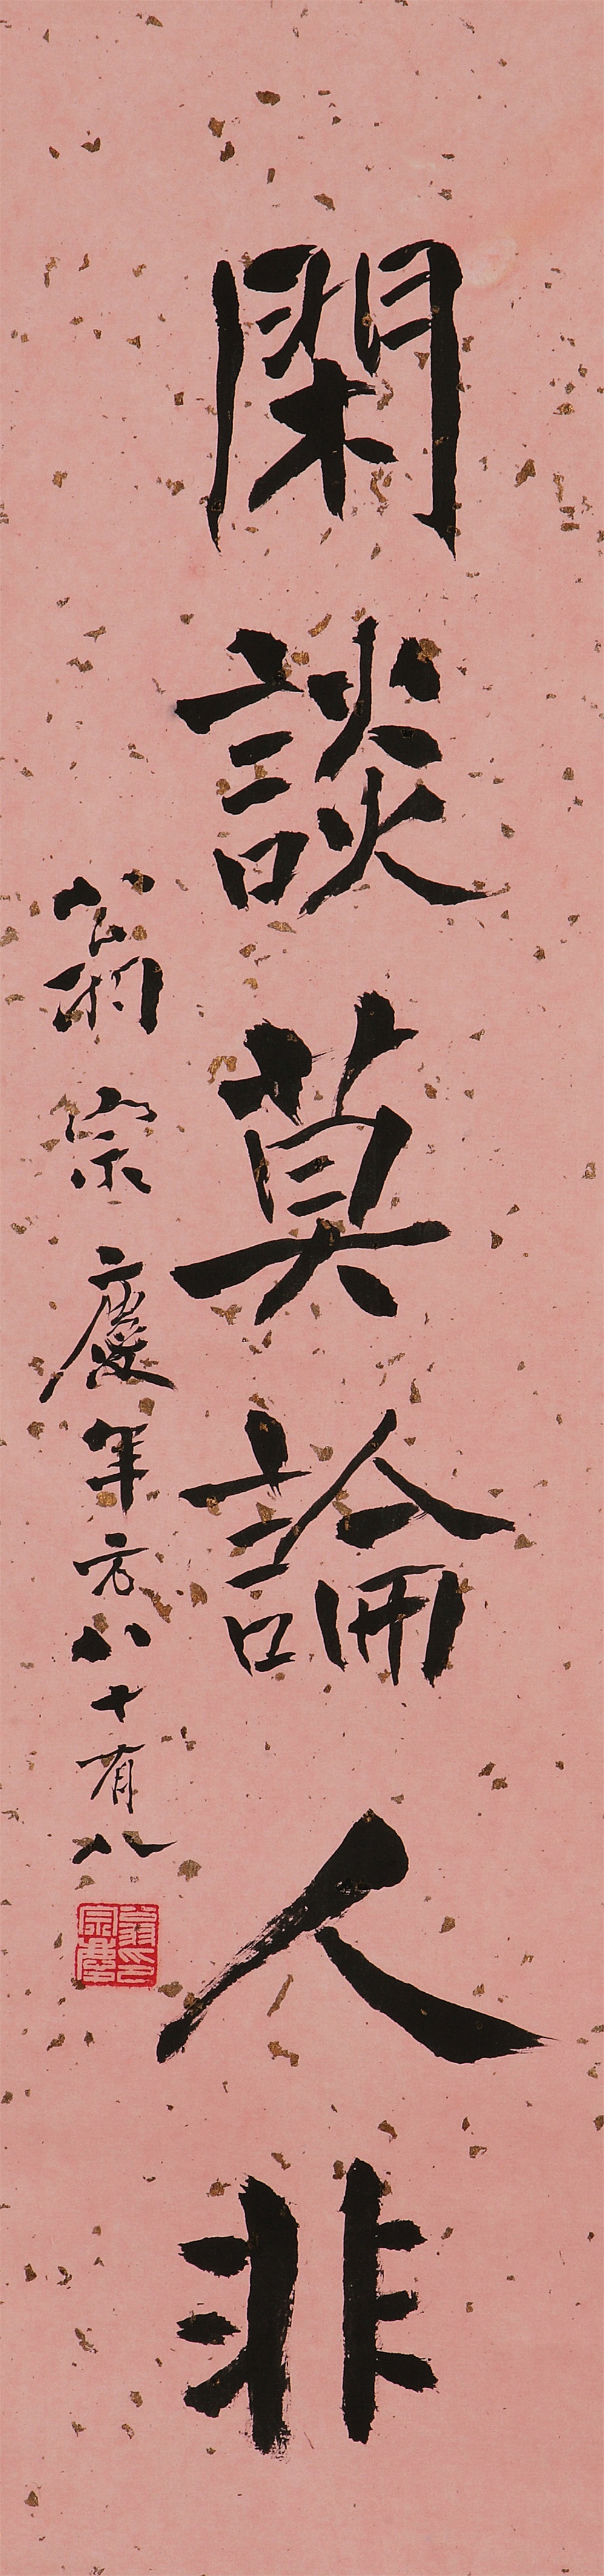 閑談莫論人非
翁宗慶年方八十有八
翁宗慶印